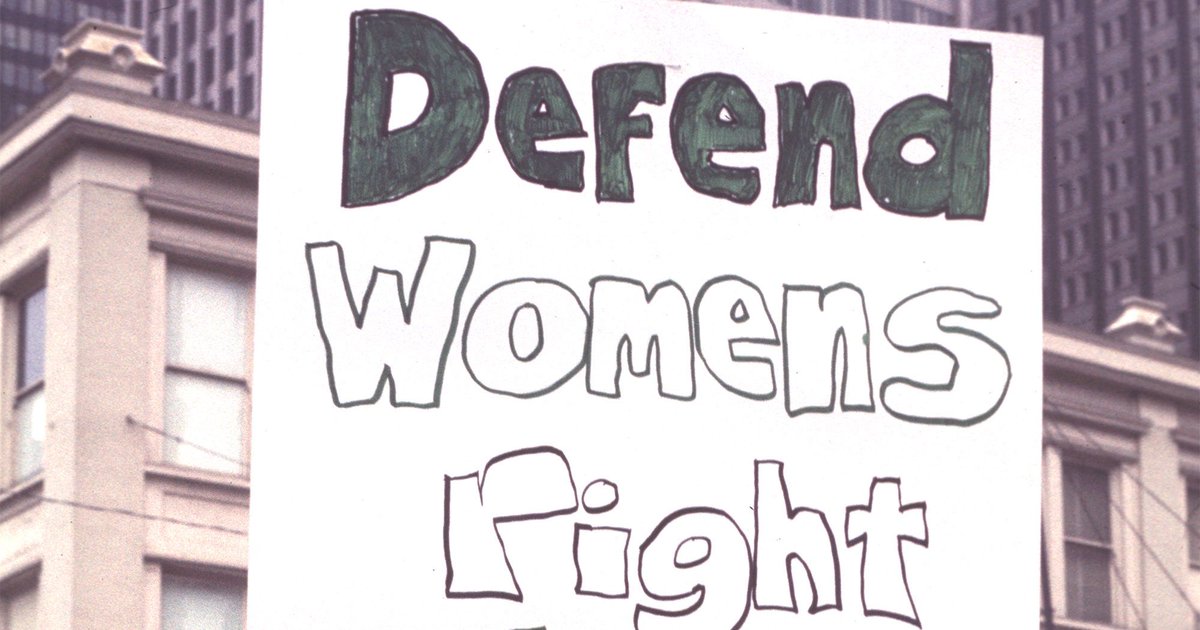 Defend
Womens
right